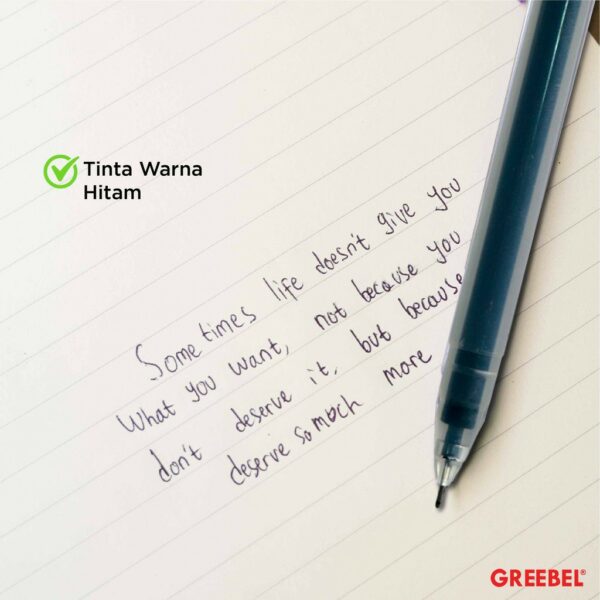 Tinta Warna
Hitam
Some times life doesn't give you
What you want, not because you
don't deserve it, but because
deserve so much more
GREEBEL®